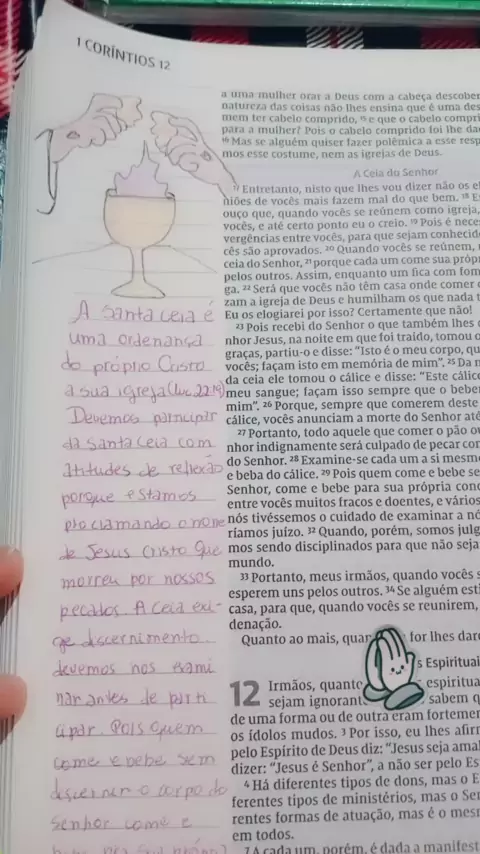 1 CORÍNTIOS 12
A Santa ceia é
uma ordenança
do próprio Cristo
a sua igreja (Luc 22:19)
Devemos participar
da santa ceia com
atitudes de reflexão
porque estamos
proclamando o nome
de Jesus Cristo que
morreu por nossos
pecados. A Ceia exi-
ge discernimento.
devemos nos exami
nar antes de parti
cipar. Pois quem
come e bebe sem
discernir o corpo do
Senhor come e
a uma mulher orar a Deus com a cabeça descober
natureza das coisas não lhes ensina que é uma des
mem ter cabelo comprido, 15 e que o cabelo compri
para a mulher? Pois o cabelo comprido foi lhe da
16 Mas se alguém quiser fazer polêmica a esse resp
mos esse costume, nem as igrejas de Deus.
A Ceia do Senhor
17 Entretanto, nisto que lhes vou dizer não os el
niões de vocês mais fazem mal do que bem. 18 E
ouço que, quando vocês se reúnem como igreja,
vocês, e até certo ponto eu o creio. 19 Pois é nece
vergências entre vocês, para que sejam conhecid
cês são aprovados. 20 Quando vocês se reúnem,
ceia do Senhor, 21 porque cada um come sua própr
pelos outros. Assim, enquanto um fica com fom
ga. 22 Será que vocês não têm casa onde comer
zam a igreja de Deus e humilham os que nada t
Eu os elogiarei por isso? Certamente que não!
23 Pois recebi do Senhor o que também lhes
nhor Jesus, na noite em que foi traído, tomou o
graças, partiu-o e disse: "Isto é o meu corpo, qu
vocês; façam isto em memória de mim". 25 Da n
da ceia ele tomou o cálice e disse: "Este cálice
meu sangue; façam isso sempre que o bebe
mim". 26 Porque, sempre que comerem deste
cálice, vocês anunciam a morte do Senhor até
27 Portanto, todo aquele que comer o pão o
nhor indignamente será culpado de pecar con
do Senhor. 28 Examine-se cada um a si mesm
e beba do cálice. 29 Pois quem come e bebe se
Senhor, come e bebe para sua própria con
entre vocês muitos fracos e doentes, e vários
nós tivéssemos o cuidado de examinar a nó
ríamos juízo. 32 Quando, porém, somos julg
mos sendo disciplinados para que não seja
mundo.
33 Portanto, meus irmãos, quando vocês s
esperem uns pelos outros. 34 Se alguém esti
casa, para que, quando vocês se reunirem,
denação.
Quanto ao mais, quan for lhes dar
s Espirituai
12 Irmãos, quanto espiritua
sejam ignorant sabem q
de uma forma ou de outra eram fortemen
os ídolos mudos. 3 Por isso, eu lhes afir
pelo Espírito de Deus diz: "Jesus seja amal
dizer: "Jesus é Senhor", a não ser pelo Es
4 Há diferentes tipos de dons, mas o E
ferentes tipos de ministérios, mas o Se
rentes formas de atuação, mas é o mes
em todos.
7 A cada um, porém, é dada a manifest